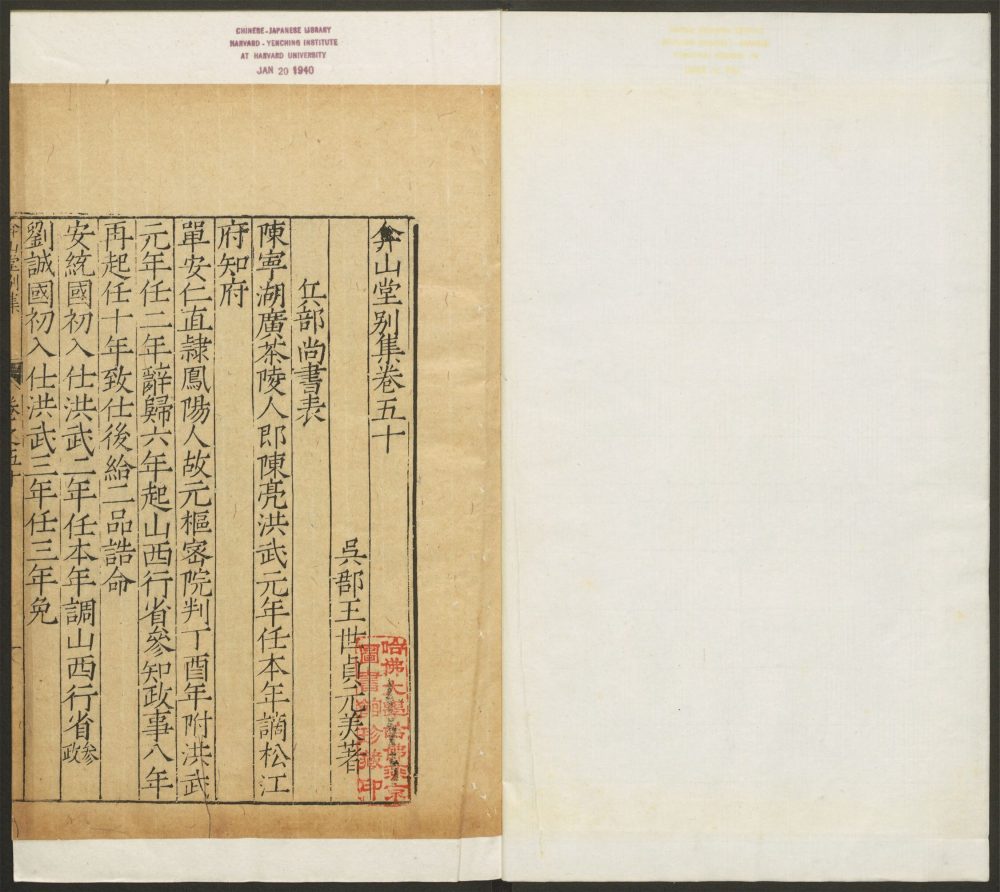 CHINESE-JAPANESE LIBRARY
HARVARD-YENCHING INSTITUTE
AT HARVARD UNIVERSITY
JAN 20 1940
弇山堂別集卷五十
吳郡王世貞元美著
兵部尚書表
陳寧湖廣茶陵人即陳亮洪武元年任本年謫松江
府知府
單安仁直隸鳳陽人故元樞密院判丁酉年附洪武
元年任二年辭歸六年起山西行省參知政事八年
再起任十年致仕後給二品誥命
安統國初入仕洪武二年任本年調山西行省參政
劉誠國初入仕洪武三年任三年免
弇山堂別集
卷之五十
一
哈佛大學哈佛燕京
圖書館珍藏印